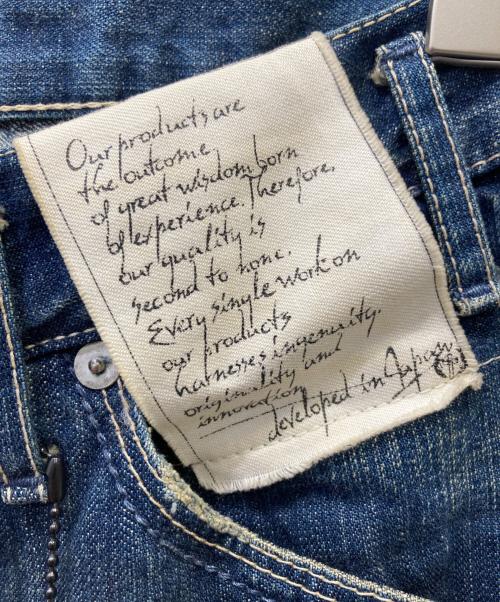 Our products are
the outcome
of great wisdom born
of experience. Therefore,
our quality is
second to none.
Every single work on
our products
harnesses ingenuity,
originality and
innovation
developed in Japan